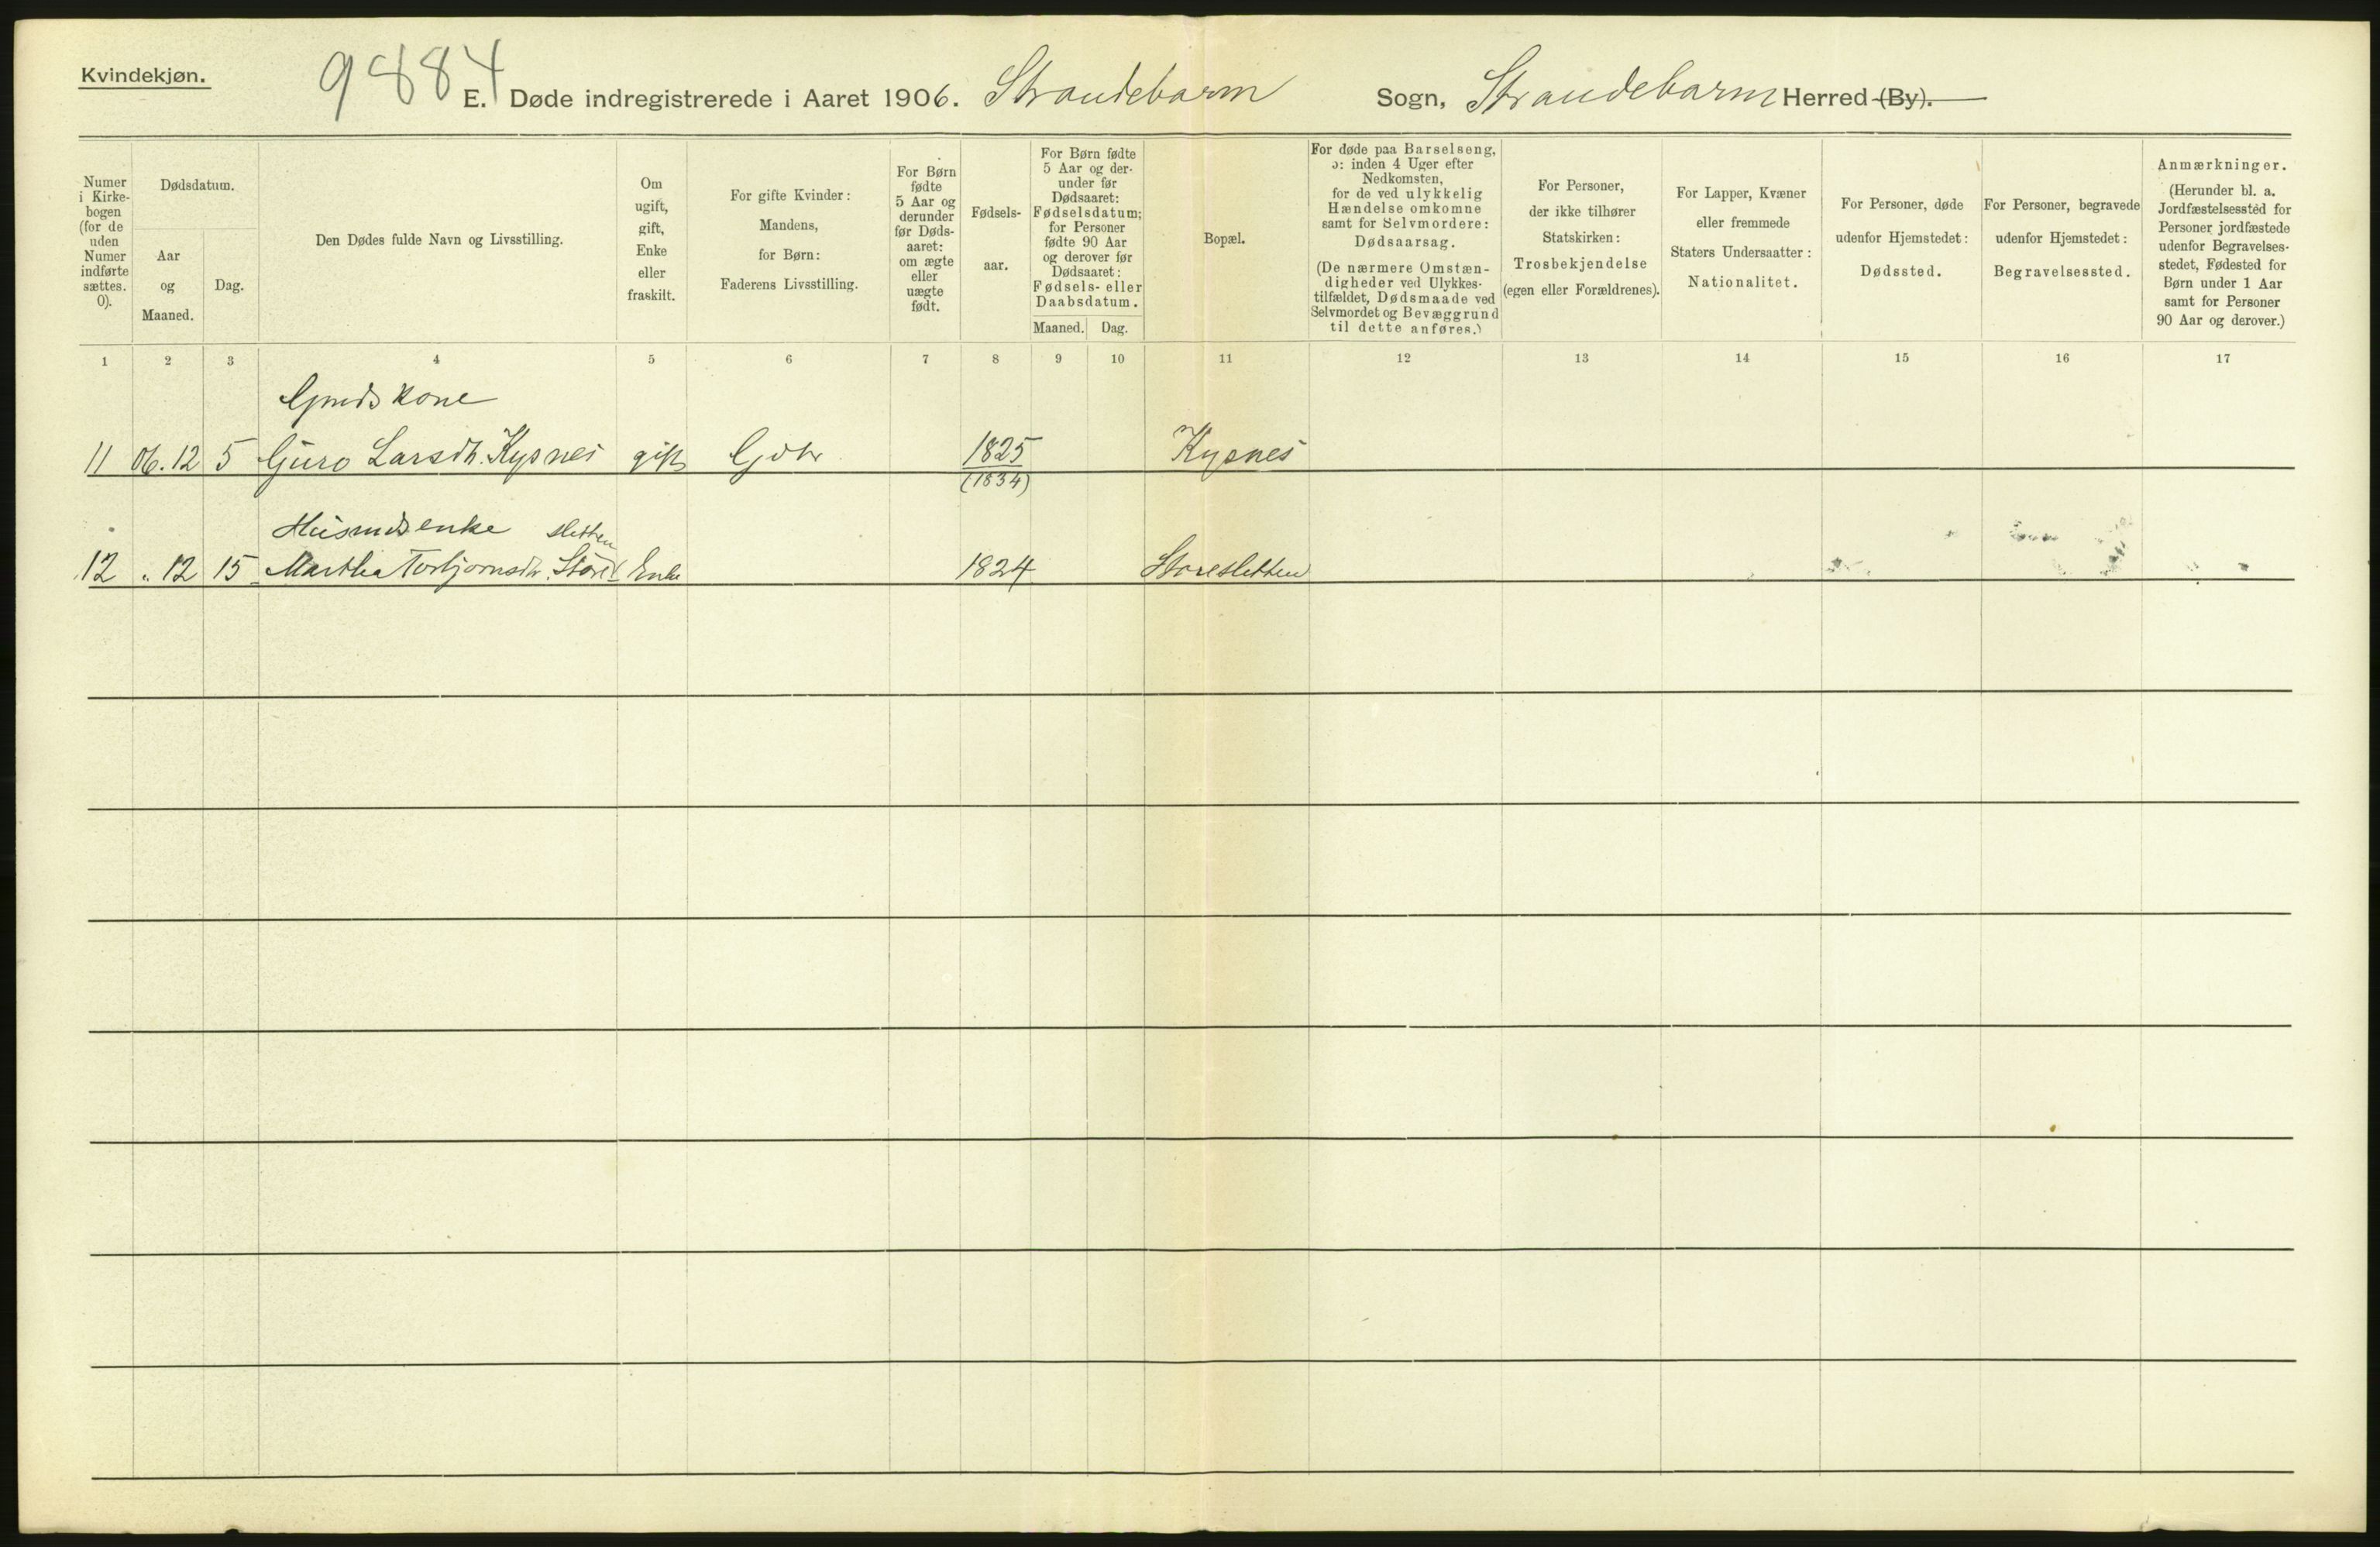 Kvindekjøn.
9884
E. Døde indregistrerede i Aaret 1906. Strandebarm Sogn, Strandebarm Herred (By).
Numer
i Kirke-
bogen
(for de
uden
Numer
indførte
sættes.
0).
Dødsdatum.
Aar
og
Maaned.
Dag.
Den Dødes fulde Navn og Livsstilling.
Om
ugift,
gift,
Enke
eller
fraskilt.
For gifte Kvinder:
Mandens,
for Børn:
Faderens Livsstilling.
For Børn
fødte
5 Aar og
derunder
før Døds-
aaret:
om ægte
eller
uægte
født.
Fødsels-
aar.
For Børn fødte
5 Aar og der-
under før
Dødsaaret:
Fødselsdatum;
for Personer
fødte 90 Aar
og derover før
Dødsaaret:
Fødsels- eller
Daabsdatum.
Maaned. Dag.
Bopæl.
For døde paa Barselseng,
ɔ: inden 4 Uger efter
Nedkomsten,
for de ved ulykkelig
Hændelse omkomne
samt for Selvmordere:
Dødsaarsag.
(De nærmere Omstæn-
digheder ved Ulykkes-
tilfældet, Dødsmaade ved
Selvmordet og Bevæggrund
til dette anføres.)
For Personer,
der ikke tilhører
Statskirken:
Trosbekjendelse
(egen eller Forældrenes).
For Lapper, Kvæner
eller fremmede
Staters Undersaatter:
Nationalitet.
For Personer, døde
udenfor Hjemstedet:
Dødssted.
For Personer, begravede
udenfor Hjemstedet:
Begravelsessted.
Anmærkninger.
(Herunder bl. a.
Jordfæstelsessted for
Personer jordfæstede
udenfor Begravelses-
stedet, Fødested for
Børn under 1 Aar
samt for Personer
90 Aar og derover.)
1 2 3 4 5 6 7 8 9 10 11 12 13 14 15 16 17
Gmds kone
11 06.12 5 Guro Larsdtr. Kysnes gift Gdbr 1825 Kysnes
(1834)
Husmdsenke sletten
12 " 12 15 Martha Torbjørnsdtr. Store Enke 1824 Storesletten